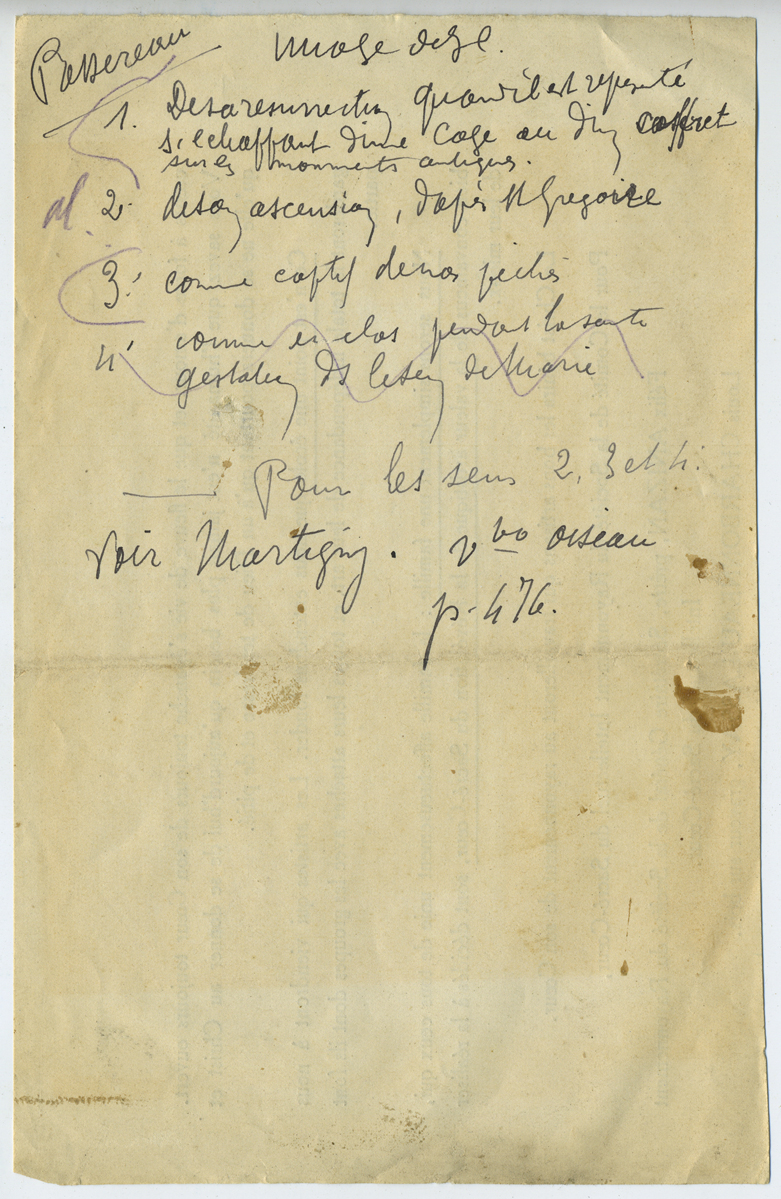 Passereau
Image de J.C.
1. De sa résurrection quand il est représenté
s'échappant d'une cage ou d'un coffret
sur les monuments antiques.
2. de son ascension, d'après St Gregoire
3. comme captif de nos péchés
4. comme enclos pendant la sainte
gestation ds le sein de Marie
Pour les sens 2, 3 et 4.
voir Martigny. vbo oiseau
p. 476.